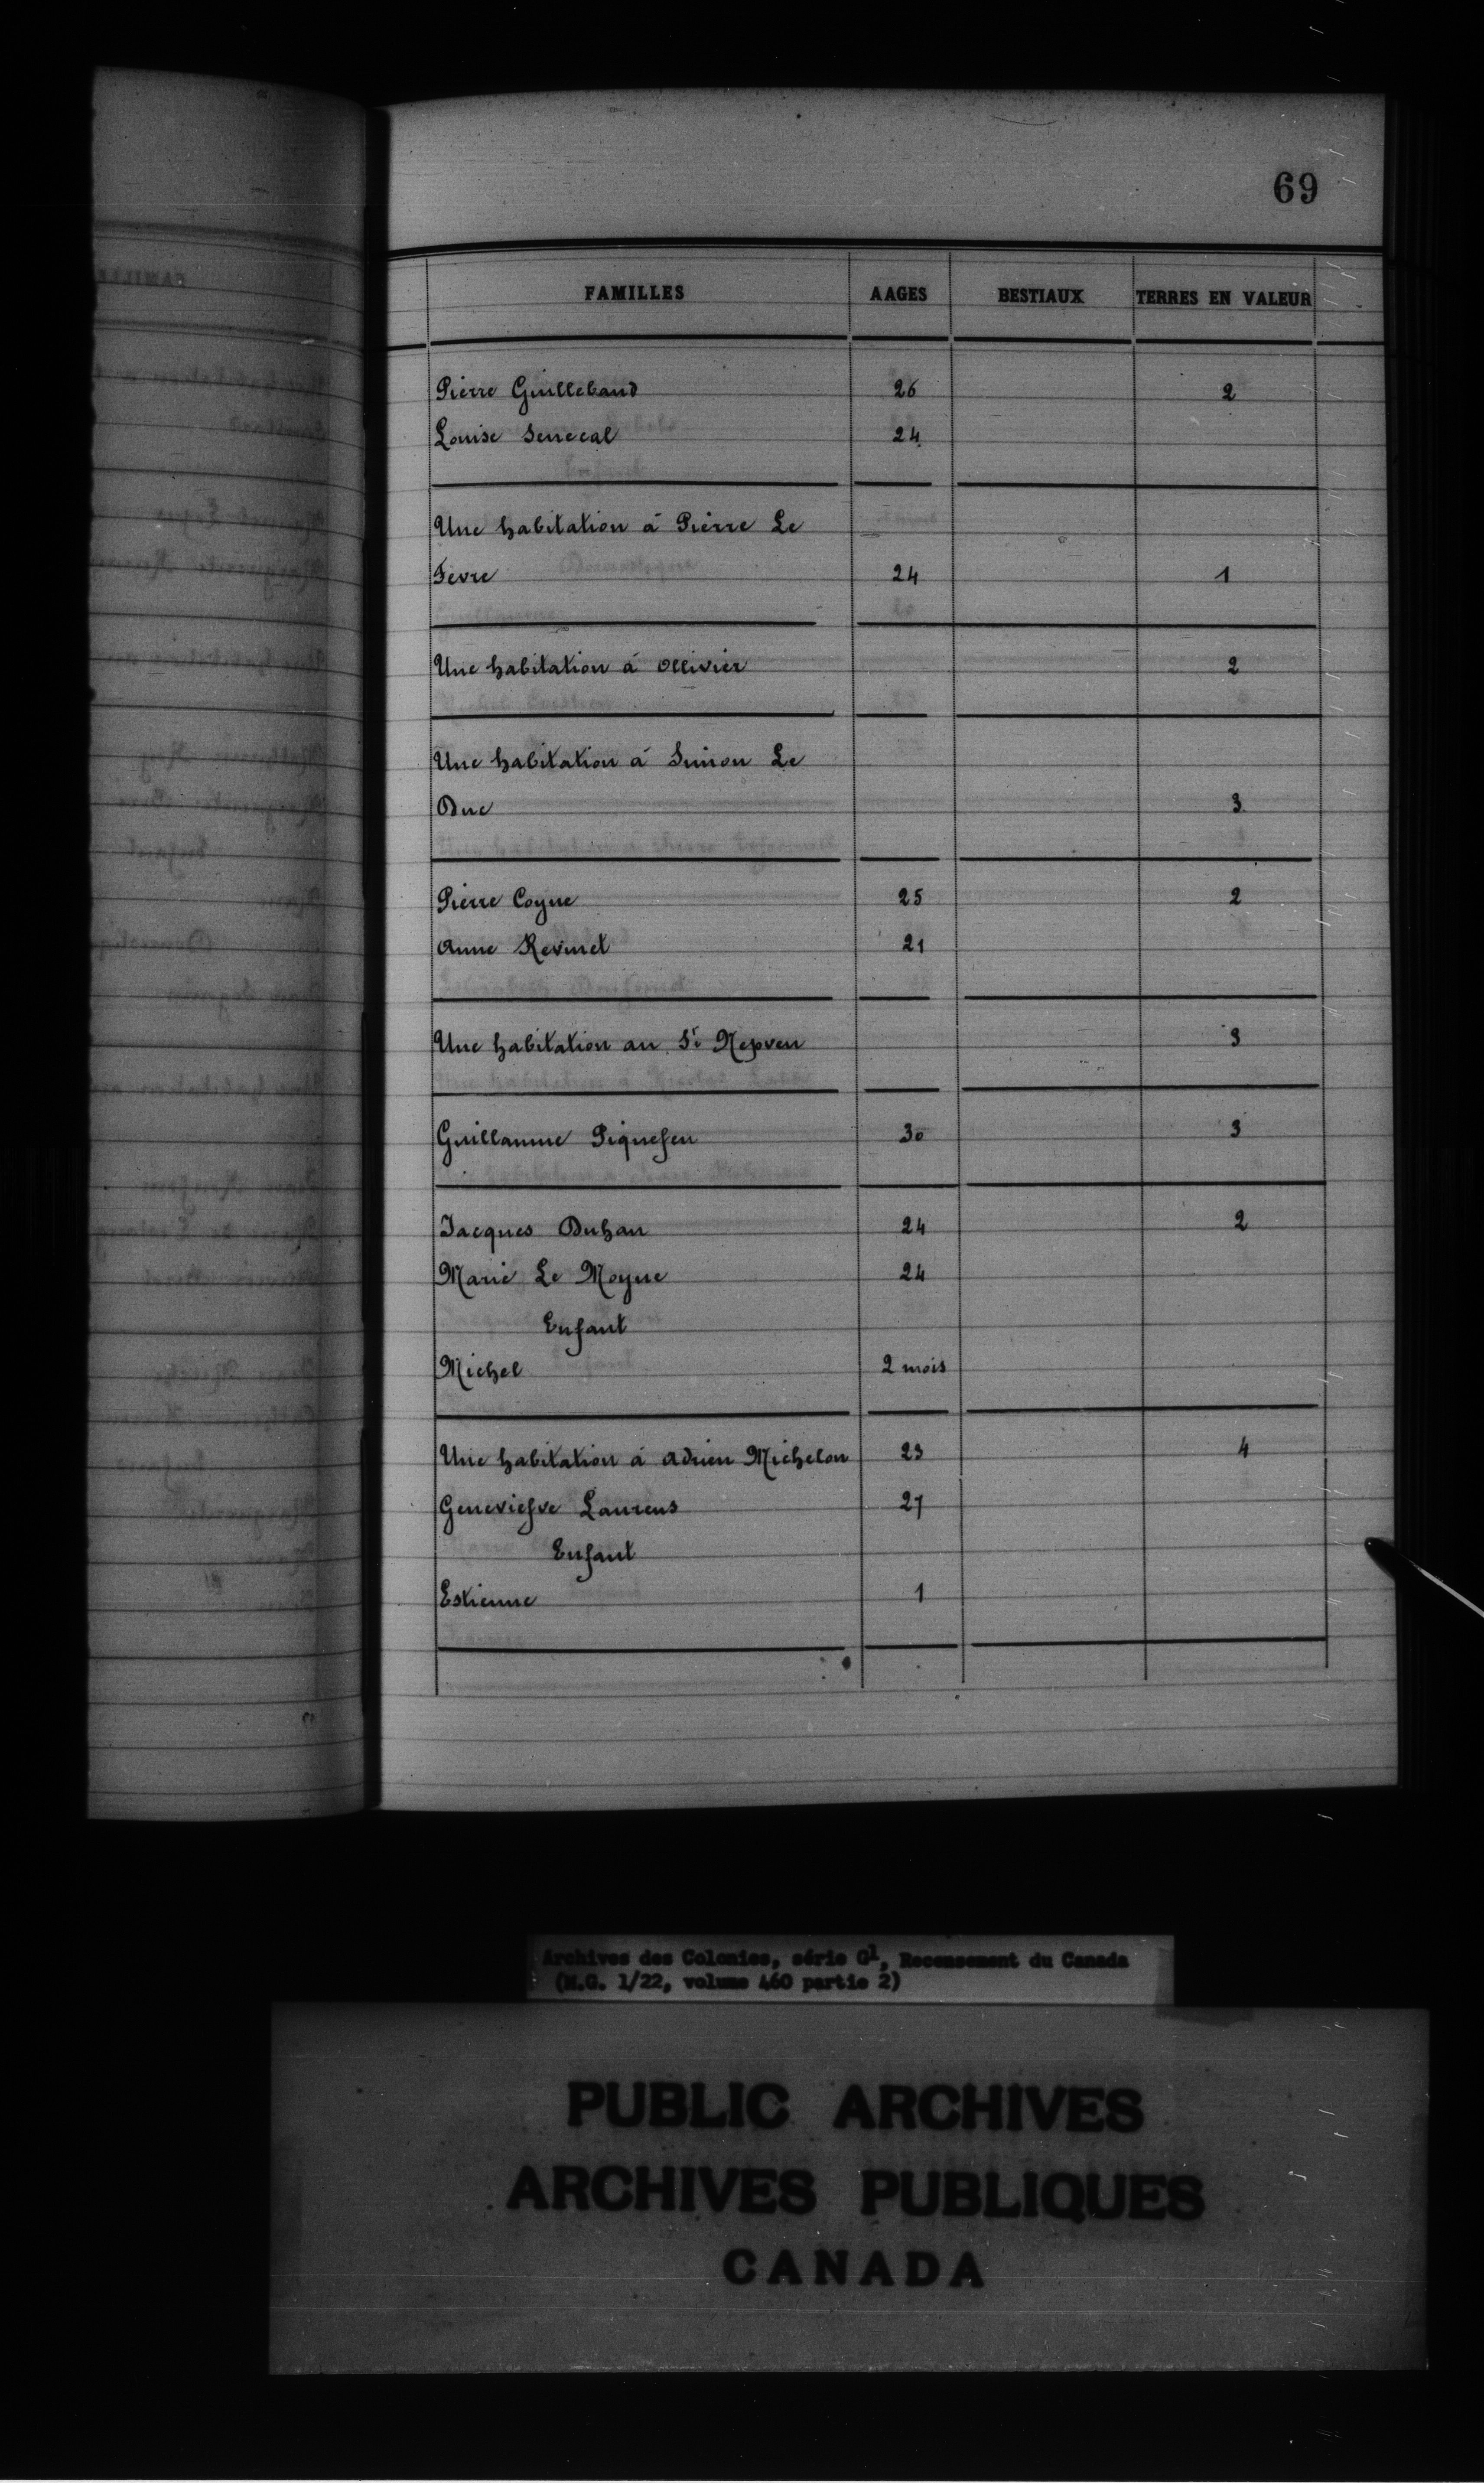 69
FAMILLES AAGES BESTIAUX TERRES EN VALEUR
Pierre Guillebaud 26 2
Louise Senecal 24
Une habitation à Pierre Le
Fevre 24 1
Une habitation à Ollivier 2
Une habitation à Simon Le
Duc 3
Pierre Coyne 25 2
Anne Revmet 21
Une habitation au Sr Nepveu 3
Guillaume Piquefeu 30 3
Jacques Duhau 24 2
Marie Le Moyne 24
Enfant
Michel 2 mois
Une habitation à Adrien Michelon 23 4
Geneviefve Laurens 27
Enfant
Estienne 1
Archives des Colonies, série G1, Recensement du Canada
(M.G. 1/22, volume 460 partie 2)
PUBLIC ARCHIVES
ARCHIVES PUBLIQUES
CANADA